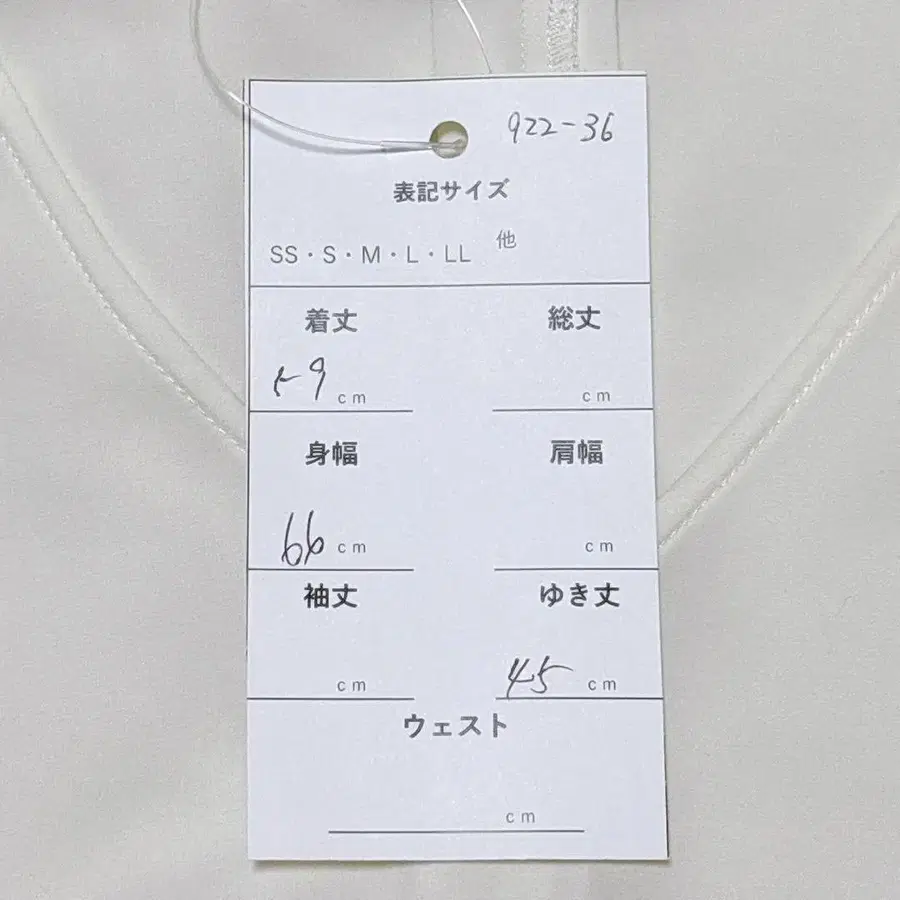 922-36
表記サイズ
SS・S・M・L・LL 他
着丈 総丈
59 cm cm
身幅 肩幅
66 cm cm
袖丈 ゆき丈
cm 45 cm
ウェスト
cm